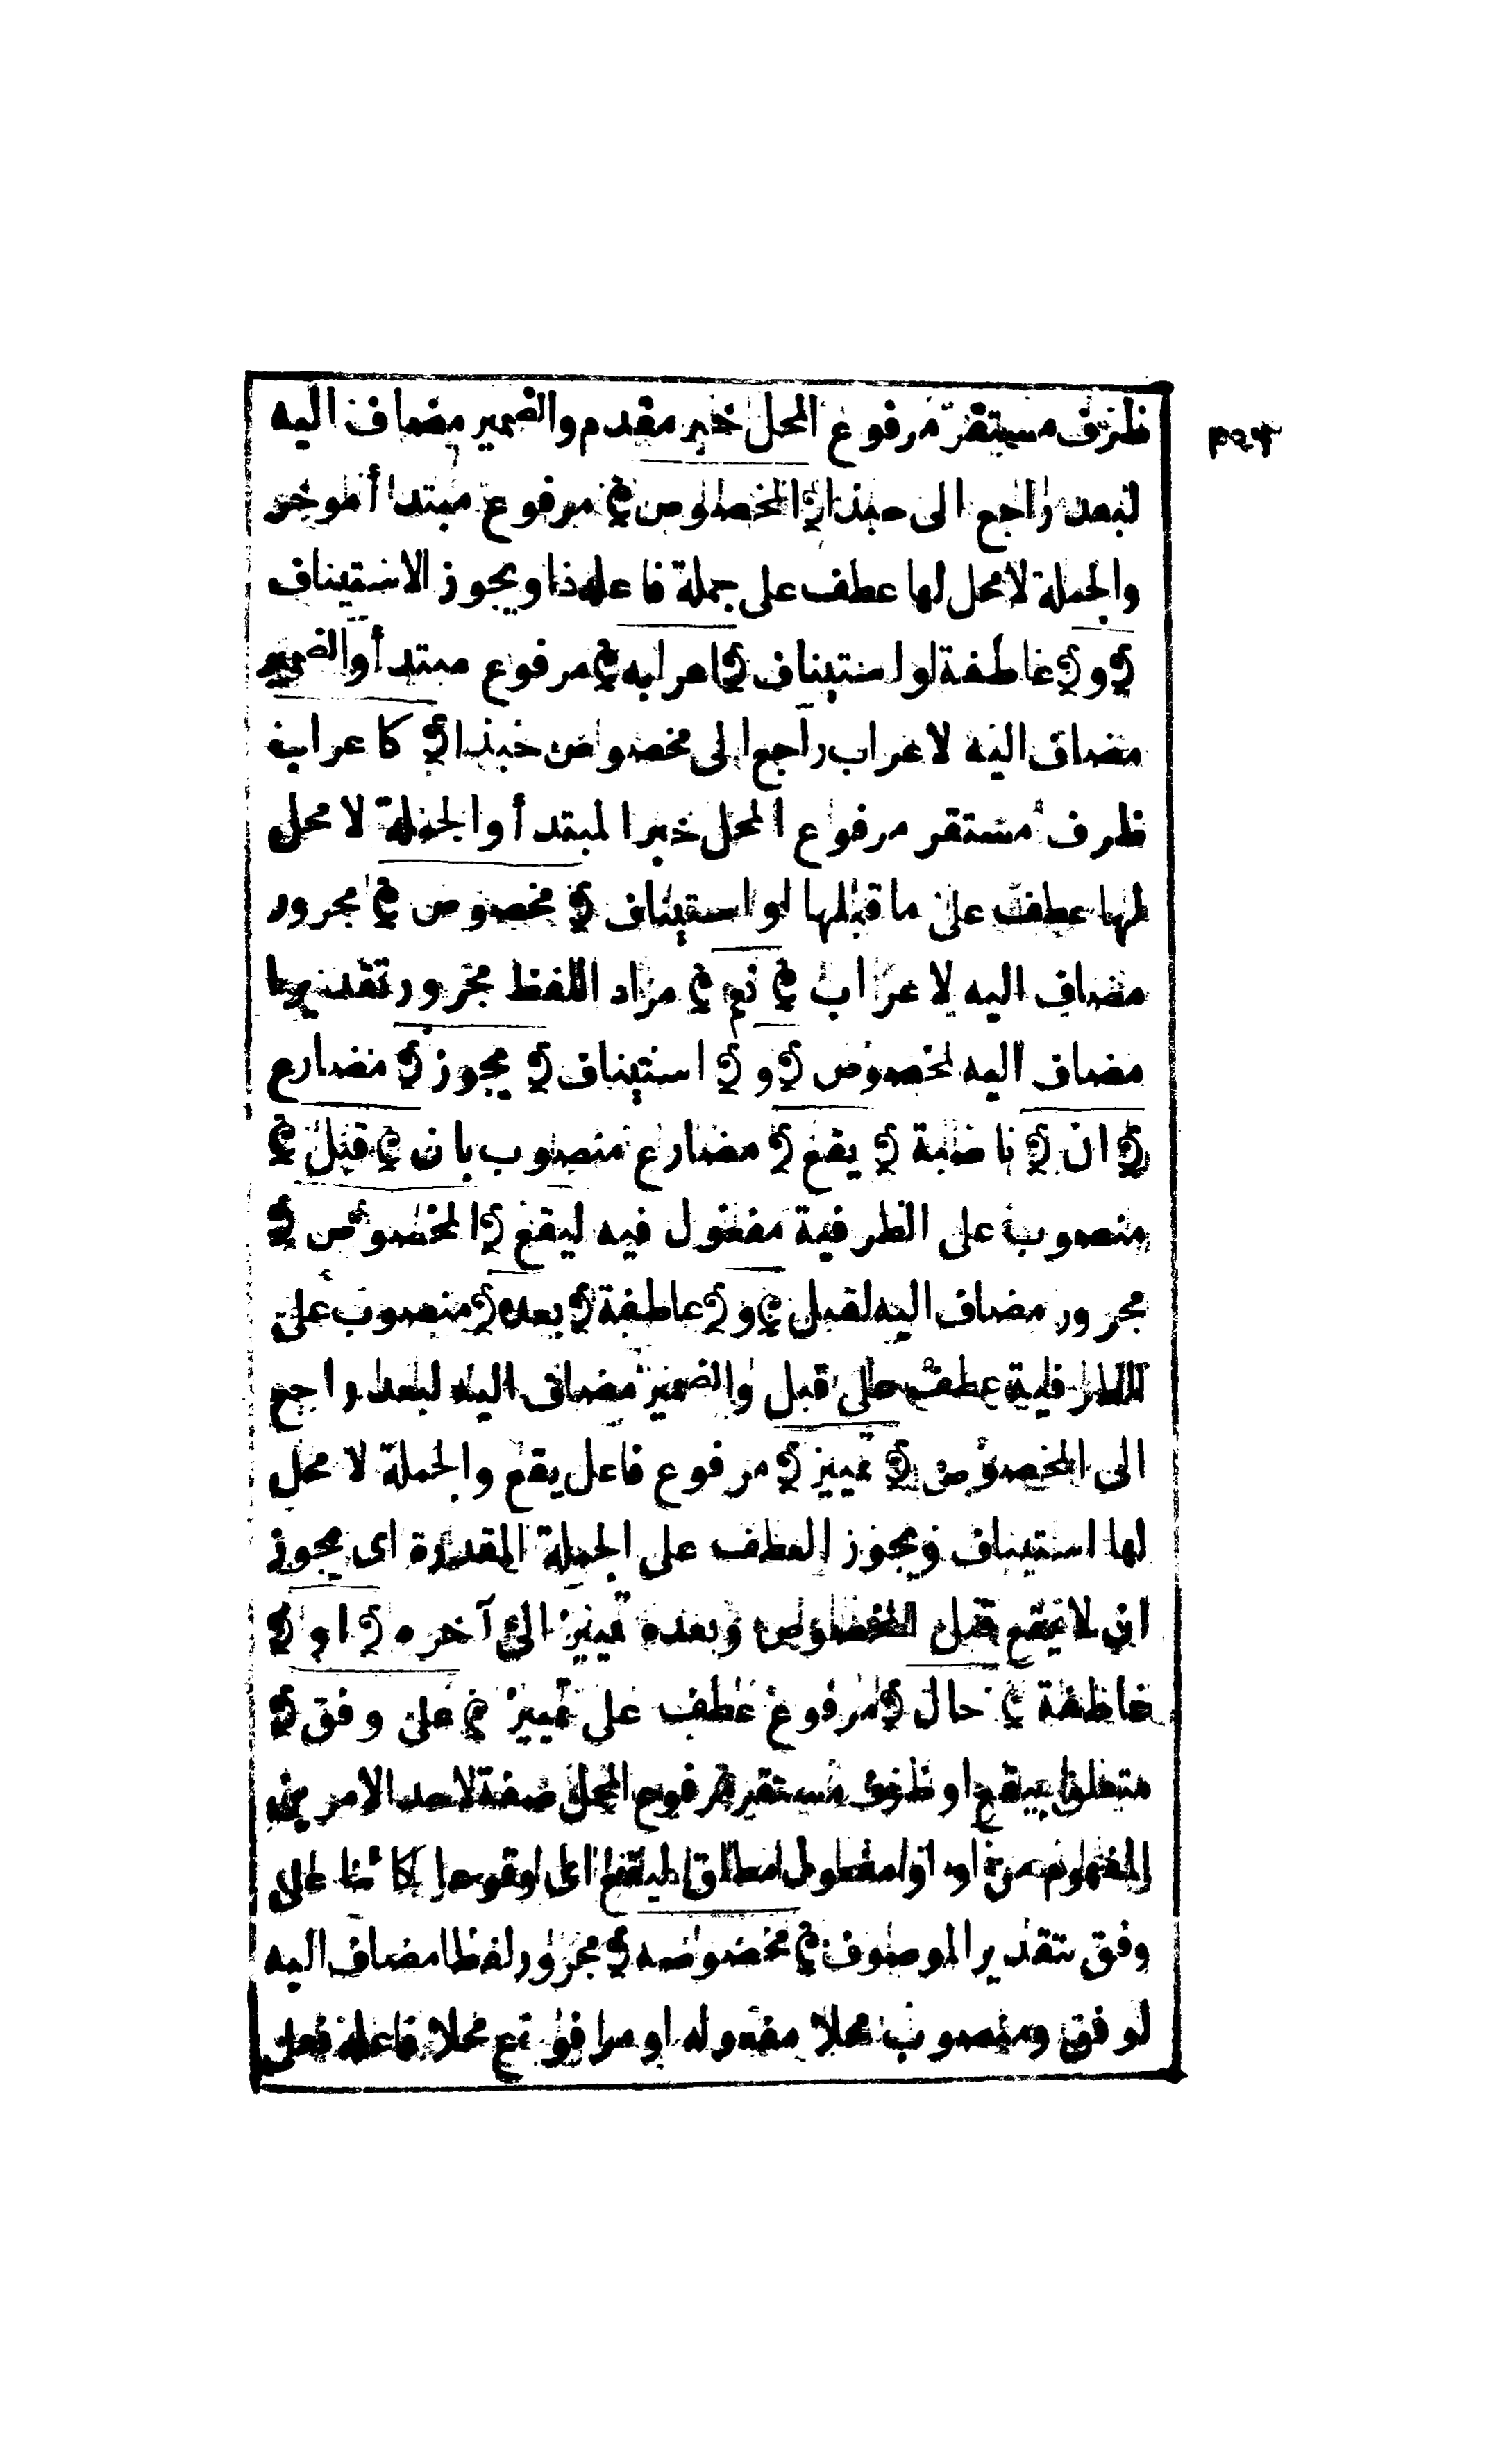 ظرف مستقر مرفوع المحل خبر مقدم والضمير مضاف اليه
لبعد راجع الى حبذا المخصوص مرفوع مبتدأ موخر
والجملة لا محل لها عطف على جملة فاعله ذا ويجوز الاستيناف
و عاطفة او استيناف اعرابه مرفوع مبتدأ والضمير
مضاف اليه لاعراب راجع الى مخصوص حبذا كاعراب
ظرف مستقر مرفوع المحل خبر المبتدأ والجملة لا محل
لها عطف على ما قبلها او استيناف مخصوص مجرور
مضاف اليه لاعراب نعم مراد اللفظ مجرور تقديرا
مضاف اليه لمخصوص و استيناف يجوز مضارع
ان ناصبة يقع مضارع منصوب بان قبل
منصوب على الظرفية مفعول فيه ليقع المخصوص
مجرور مضاف اليه لقبل و عاطفة بعده منصوب على
الظرفية عطف على قبل والضمير مضاف اليه لبعد راجع
الى المخصوص تمييز مرفوع فاعل يقع والجملة لا محل
لها استيناف ويجوز العطف على الجملة المقدرة اى يجوز
ان لا يقع قبل المخصوص وبعده تمييز الى آخره او
عاطفة حال مرفوع عطف على تمييز على وفق
متعلق بيقع او ظرف مستقر مرفوع المحل صفة لاحد الامرين
المفهوم من او او مفعول مطلق ليقع اى وقوعا كائنا على
وفق بتقدير الموصوف مخصوصه مجرور لفظا مضاف اليه
لوفق ومنصوب محلا مفعوله او مرفوع محلا فاعله فعلى